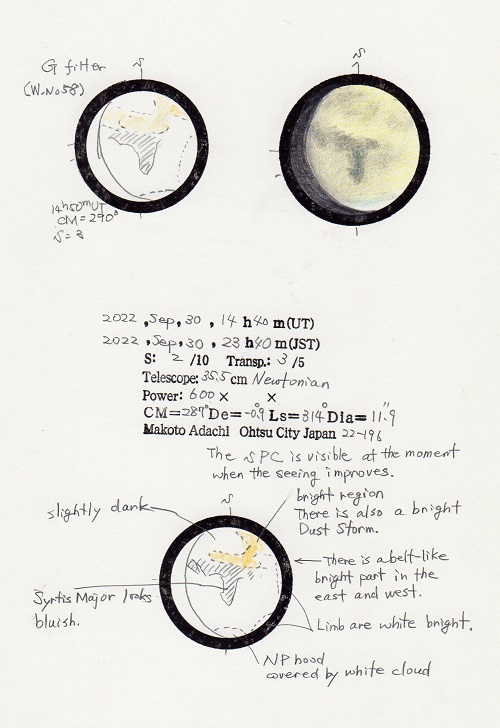 S
S
G filter
(W.No58)
14h50mUT
CM=290°
S=3
2022 ,Sep, 30 , 14 h40 m(UT)
2022 ,Sep, 30 , 23 h40 m(JST)
S: 2 /10 Transp.: 3 /5
Telescope: 35.5 cm Newtonian
Power: 600 × ×
CM=287°De=-0.9°Ls=314°Dia=11.9"
Makoto Adachi Ohtsu City Japan 22-196
The SPC is visible at the moment
when the seeing improves.
S
bright region
There is also a bright
Dust Storm.
slightly dark
There is a belt-like
bright part in the
east and west.
Syrtis Major looks
bluish.
Limb are white bright.
NP hood
covered by white cloud